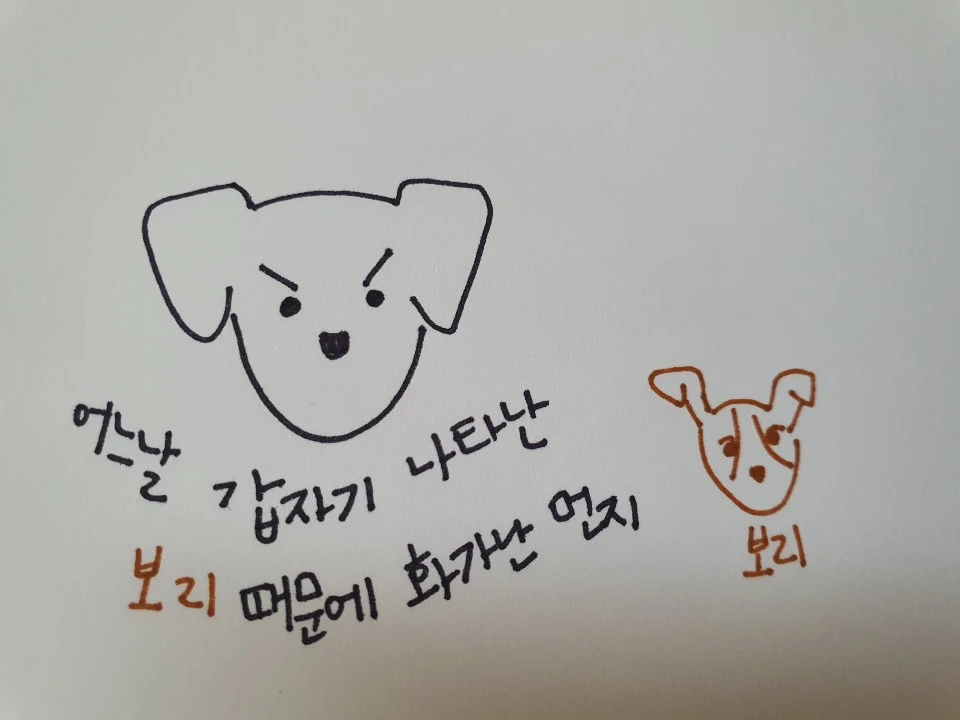 어느날 갑자기 나타난
보리 때문에 화가난 먼지
보리